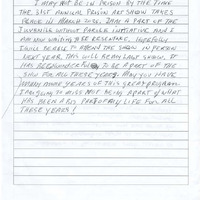 I MAY NOT BE IN PRISON BY THE TIME
THE 31ST ANNUAL PRISON ART SHOW TAKES
PLACE IN MARCH 2026. I AM A PART OF THE
JUVENILE WITHOUT PAROLE INITIATIVE, AND I
AM NOW WAITING TO BE RESENTENCE. HOPEFULLY
I WILL BE ABLE TO ATTEND THE SHOW IN PERSON
NEXT YEAR. THIS WILL BE MY LAST SHOW. IT
HAS BEEN WONDERFUL TO BE A PART OF THE
SHOW FOR ALL THESE YEARS. MAY YOU HAVE
MANY MORE YEARS OF THIS GREAT PROGRAM.
I'M GOING TO MISS NOT BEING APART OF WHAT
HAS BEEN A BIG PART OF MY LIFE FOR ALL
THESE YEARS!